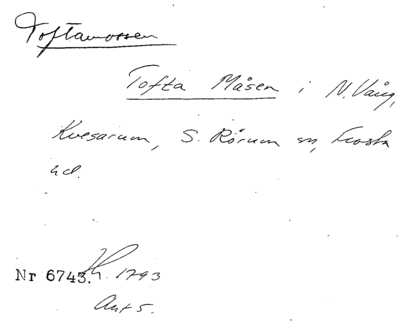 Toftamossen
Tofta Måsen i N. Vång,
Kvesarum, S. Rörum sn, Frosta
hd.
Nr 6743. 1793
Akt 5.